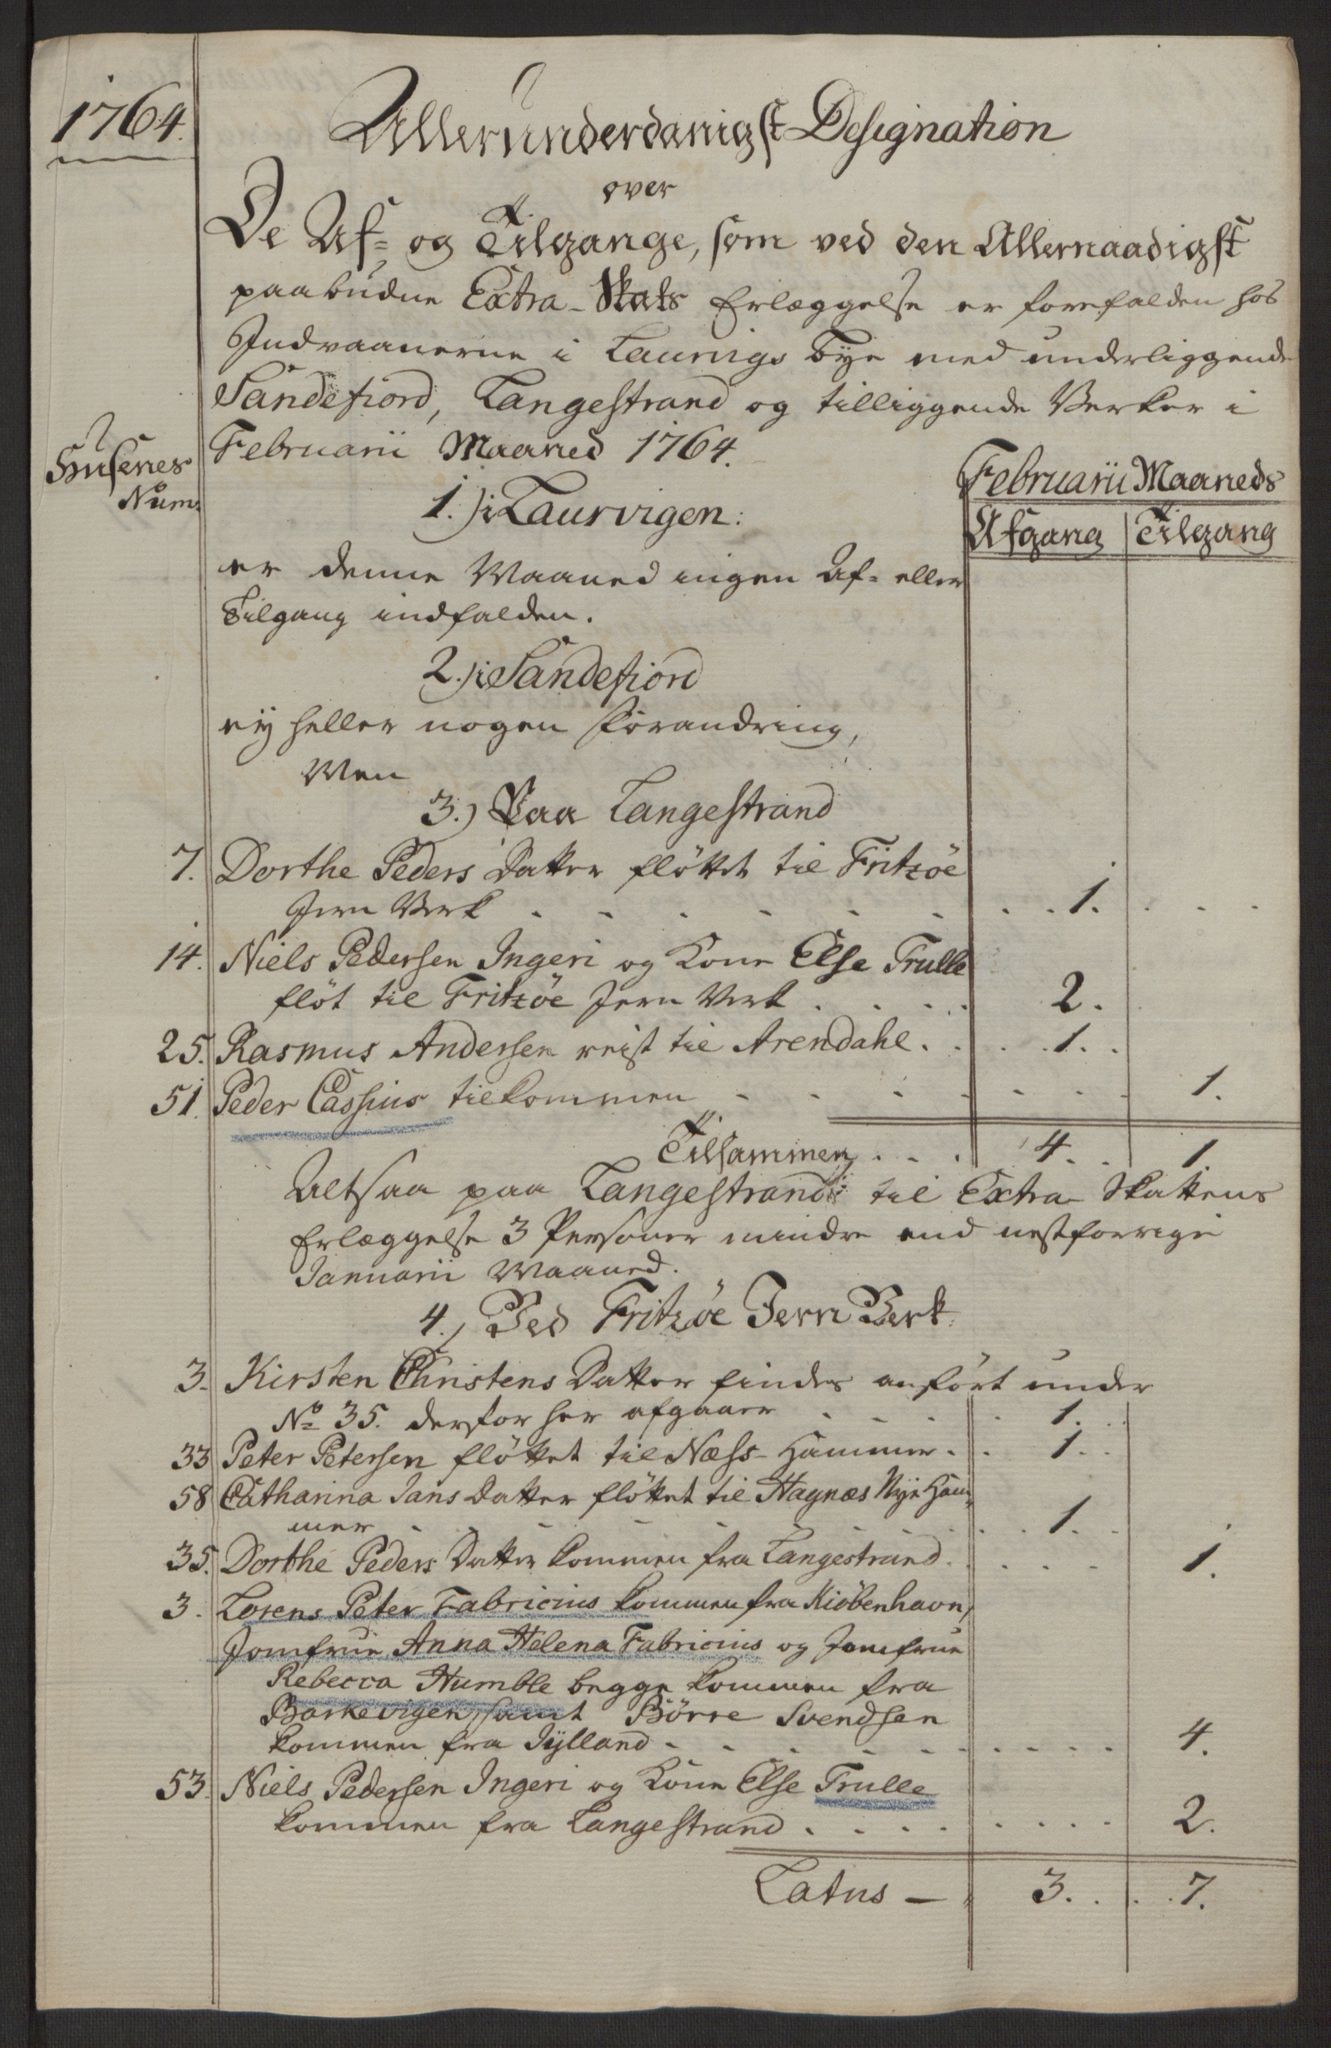 1764.
Allerunderdanigst Designation
over
De Af= og Tilgange, som ved den Allernaadigst
paabudne Extra-Skats Erlæggelse er forefalden hos
Indvaanerne i Laurvigs Bye med underliggende
Sandefiord, Langestrand og tilliggende Verker i
Februarii Maaned 1764.
Husenes
Num:
Februarii Maaneds
Afgang Tilgang
1.) i Laurvigen:
er denne Maaned ingen Af= eller
Tilgang indfalden.
2.) i Sandefiord
ey heller nogen Forandring,
Men
3.) Paa Langestrand
7. Dorthe Peders Datter fløttet til Fritzøe
Jern Verk . . . . . . . . 1. . . .
14. Niels Pedersen Ingeri og Kone Else Trulle
fløt til Fritzøe Jern Verk . . . . 2.
25. Rasmus Andersen reist til Arendahl. . . . 1. .
51. Peder Cassius tilkommen . . . . . . . . 1.
Tilsammen . . . 4. . 1
Altsaa paa Langestrand til Extra Skattens
Erlæggelse 3 Personer mindre end nestforrige
Januarii Maaned.
4.) Ved Fritzøe Jern Verk.
3. Kirsten Christens Datter findes anført under
No 35. derfor her afgaaer . . . . . 1. .
33 Peter Petersen fløttet til Næss-Hammer. . 1. .
58 Catharina Jans Datter fløttet til Hagnæs Nye Ham=
mer . . . . . . . . 1. .
35. Dorthe Peders Datter kommen fra Langestrand. . . . . 1.
3. Lorens Peter Fabricius kommen fra Kiøbenhavn,
Jomfrue Anna Helena Fabricius og Jomfrue
Rebecca Humble begge kommen fra
Barkevigen, samt Børre Svendsen
kommen fra Jylland . . . . . . . . . 4.
53. Niels Pedersen Ingeri og Kone Else Trulle
kommen fra Langestrand . . . . . . . . 2.
Latus — 3. . . . 7.